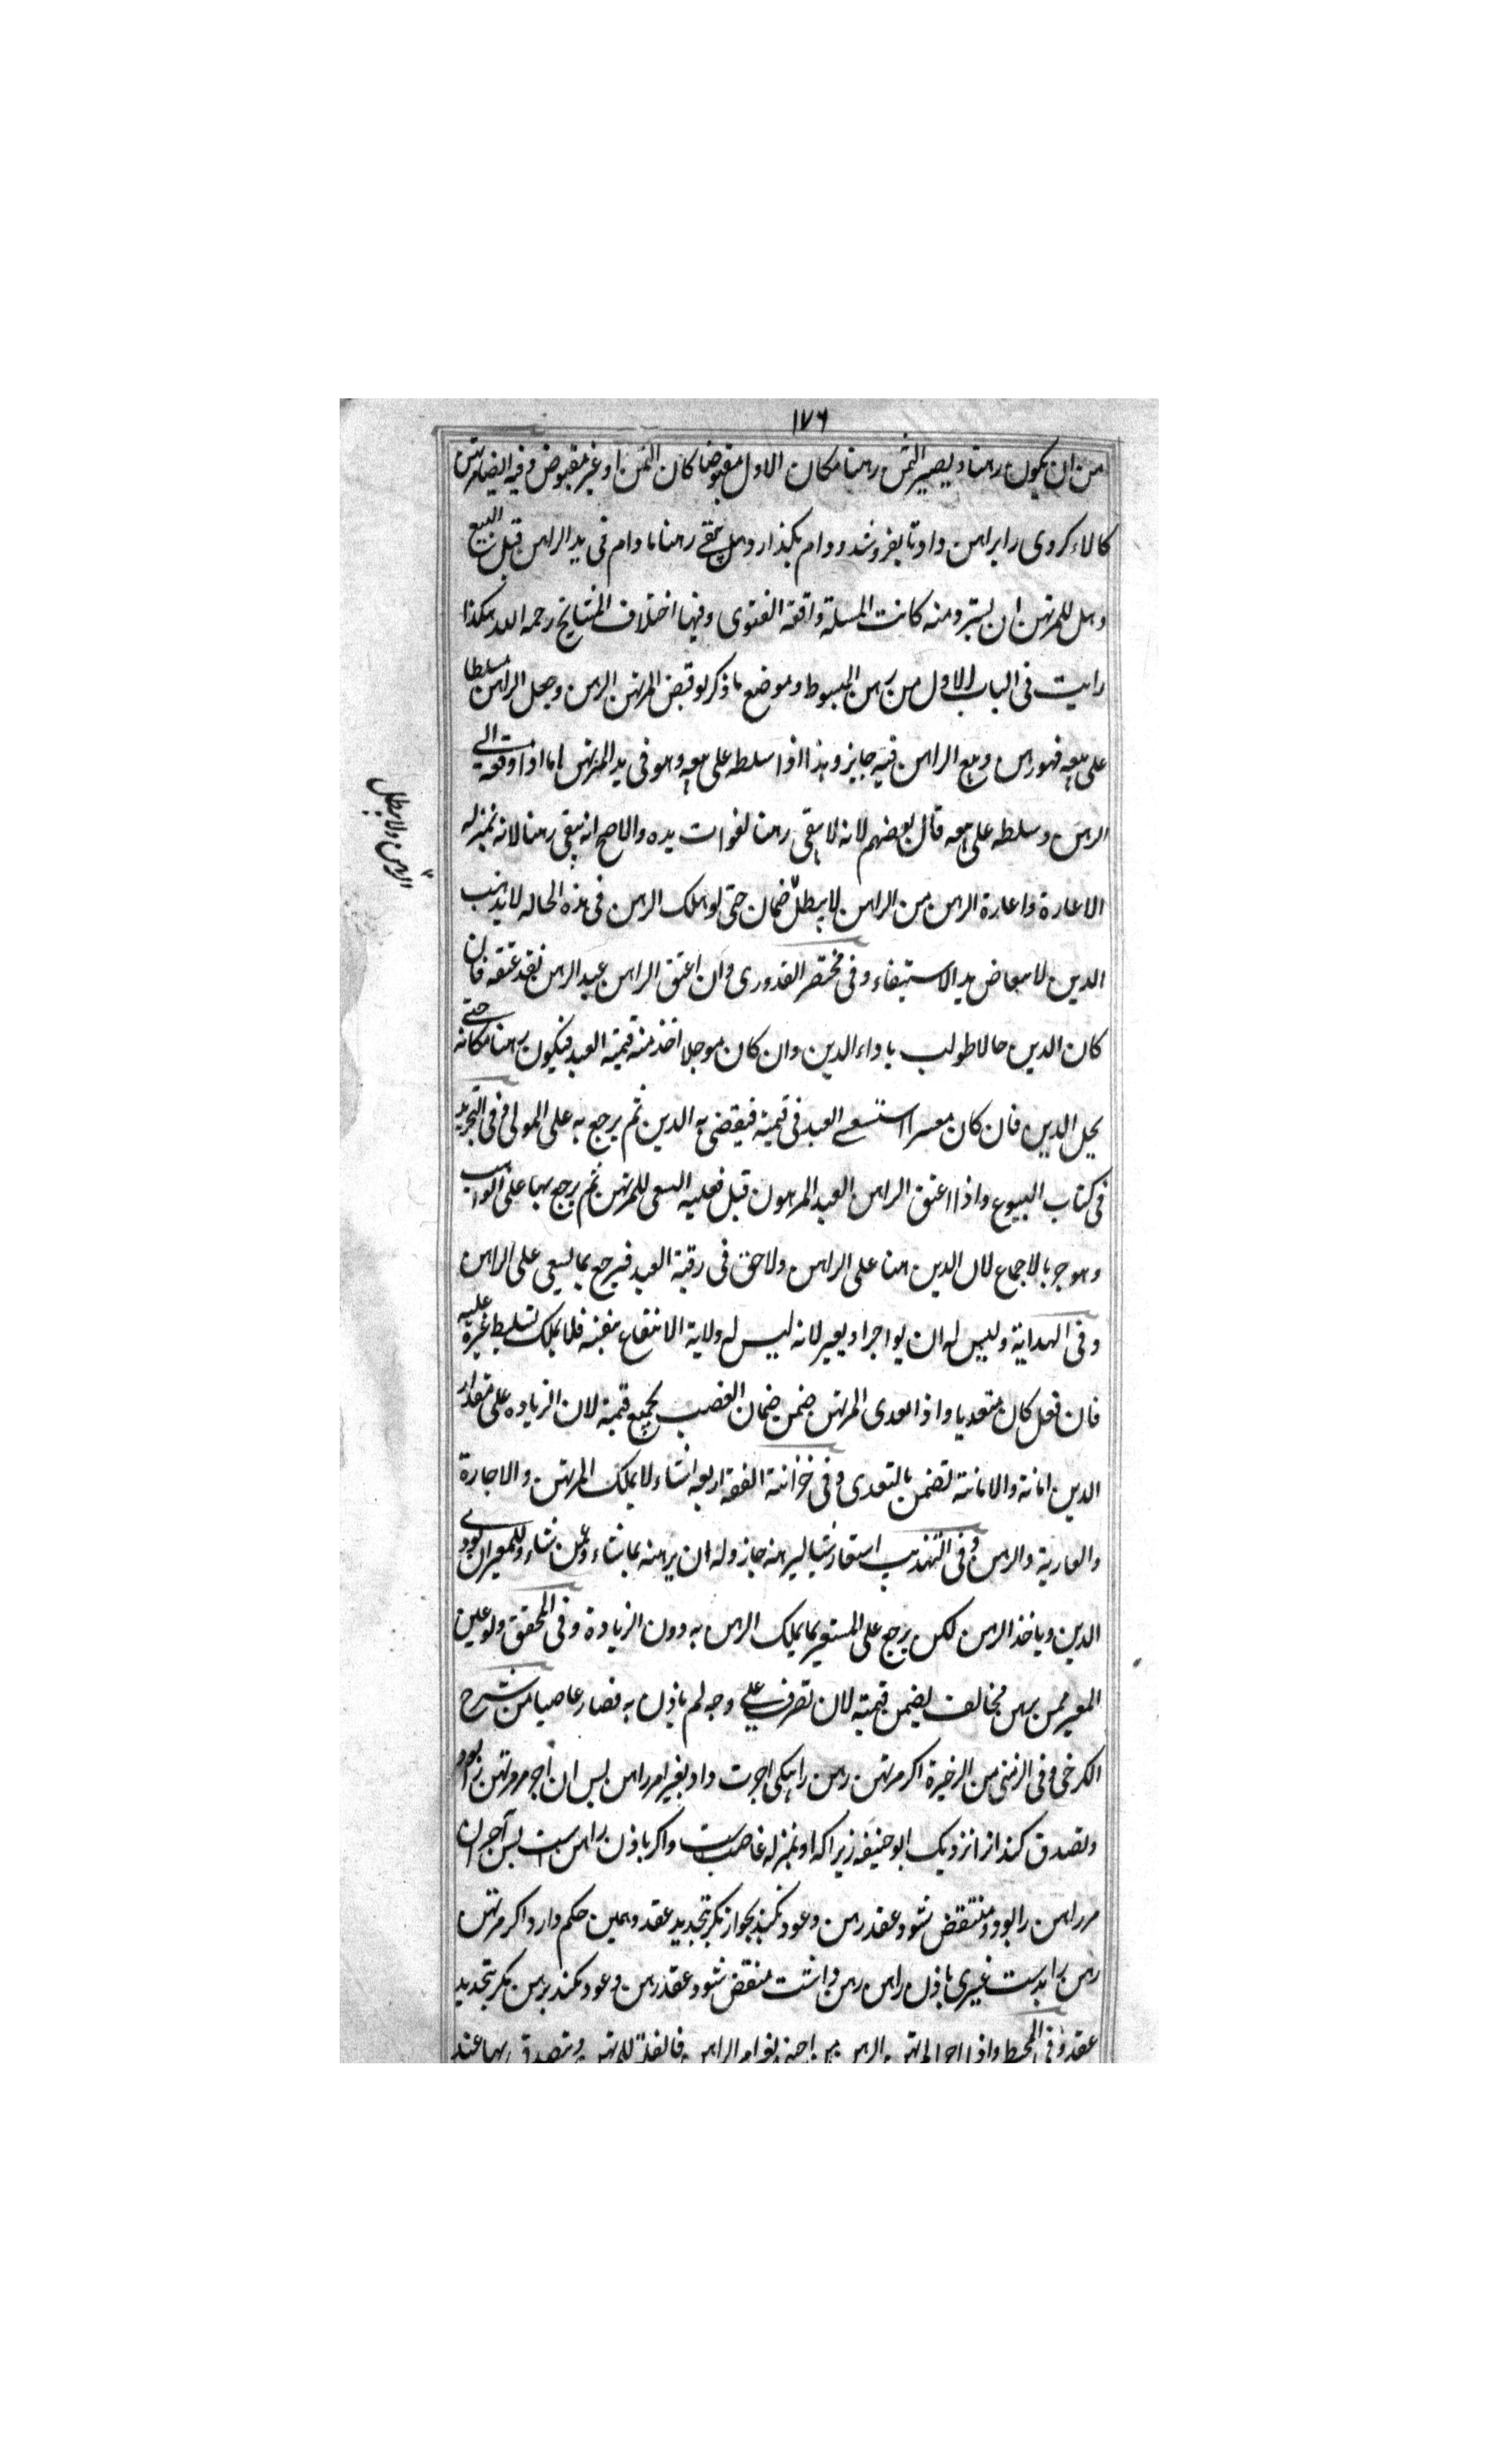 ١٧٦
من ان يكون رهنا و يصير الثمن رهنا مكان الاول مقبوضا كان الثمن او غير مقبوض وفيه ايضا مرتهن
كالاء كروى را براهن داد تا بفروشد و وام بگذارد وهل يبقى رهنا مادام فى يد الراهن قبل البيع
وهل للمرتهن ان يسترد منه كانت المسئلة واقعة الفتوى وفيها اختلاف المشايخ رحمه الله هكذا
رايت فى الباب الاول من رهن المبسوط وموضع ما ذكر لو قبض المرتهن الرهن وجعل الراهن مسلطا
على بيعه فهو رهن وبيع الراهن فيه جايز وهذا اذا سلطه على بيعه وهو فى يد المرتهن اما اذا دفعه الى
الرهن وسلطه على بيعه قال بعضهم لانه لا يبقى رهنا لفوات يده والاصح انه يبقى رهنا لانه بمنزلة
الاعارة واعارة الرهن من الراهن لا يبطل ضمان حتى لو هلك الرهن فى هذه الحالة لا يذهب
الرهن ولا يبطل
الدين لا يبعاض يد الاستيفاء وفى مختصر القدورى وان اعتق الراهن عبد الرهن نفذ عتقه فان
كان الدين حالا طولب باداء الدين وان كان موجلا اخذ منه قيمة العبد فيكون رهنا مكانه حتى
يحل الدين فان كان معسرا استسعى العبد فى قيمته فيقضى به الدين ثم يرجع به على المولى وفى التجريد
فى كتاب البيوع واذا اعتق الراهن العبد المرهون قبل فعليه السعى للمرتهن ثم يرجع بها على الواهب
وهو حر بالاجماع لان الدين هنا على الراهن ولا حق فى رقبة العبد فيرجع بما يسعى على الراهن
وفى الهداية وليس له ان يواجر او يعير لانه ليس له ولاية الانتفاع بنفسه فلا يملك تسليط غيره عليه
فان فعل كان متعديا واذا تعدى المرتهن ضمن ضمان الغصب بجميع قيمته لان الزيادة على مقدار
الدين امانة والامانة تضمن بالتعدى وفى خزانة الفقه اربعة اشياء لا يملك المرتهن والاجارة
والعارية والرهن وفى التهذيب استعار شيا ليرهنه جاز وله ان يرهنه بما شاء وعمن شاء وللمعير ان يودى
الدين وياخذ الرهن لكن يرجع على المستعير بما يملك الرهن به دون الزيادة وفى المحقق ولو عين
المعير ممن يرهن مخالف يضمن قيمته لان تصرف على وجه لم ياذن به فصار عاصيا من شرح
الكرخى وفى الزينى من الذخيرة اكر مرتهن رهن را بيكى اجرت داد بغير امر راهن پس ان اجر مر مرتهن را بود
وتصدق كند از انزديك ابو حنيفه زيرا كه او بمنزله غاصب است واكر باذن راهن ست پس آجر ان
مر راهن را بود ومنتقض شود عقد رهن وعود نكند بجواز مكر بتجديد عقد وهمين حكم دارد اكر مرتهن
رهن را بدست غيرى باذن راهن رهن داشت منتقض شود عقد رهن وعود نكند برهن مكر بتجديد
عقد وفى المحيط واذا اجر المرتهن الرهن من اجنبى بغير امر الراهن فالغلة للمرتهن ويتصدق بها عند